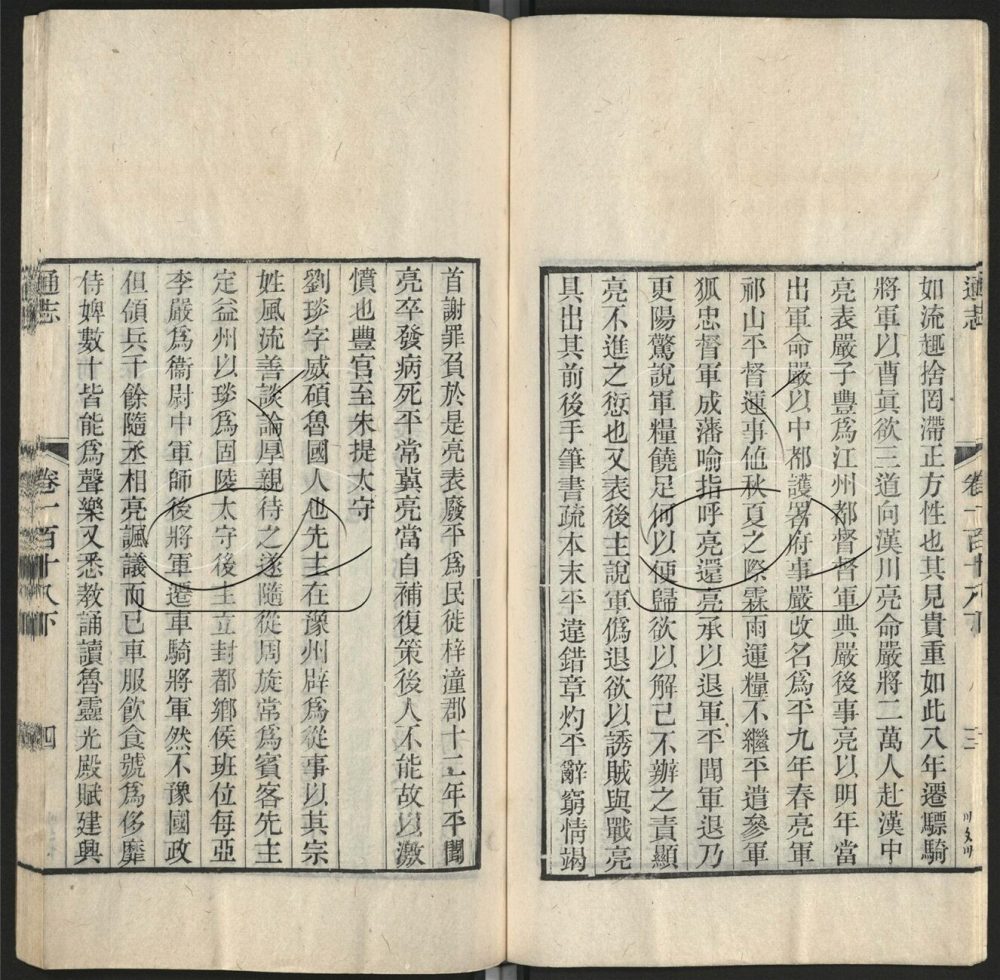 通志
卷一百十八下
三
如流趣捨罔滯正方性也其見貴重如此八年遷驃騎
將軍以曹真欲三道向漢川亮命嚴將二萬人赴漢中
亮表嚴子豐爲江州都督督軍典嚴後事亮以明年當
出軍命嚴以中都護署府事嚴改名爲平九年春亮軍
祁山平督運事値秋夏之際霖雨運糧不繼平遣參軍
狐忠督軍成藩喻指呼亮還亮承以退軍平聞軍退乃
更陽驚說軍糧饒足何以便歸欲以解己不辦之責顯
亮不進之愆也又表後主說軍僞退欲以誘賊與戰亮
具出其前後手筆書疏本末平違錯章灼平辭窮情竭
首謝罪負於是亮表廢平爲民徙梓潼郡十二年平聞
亮卒發病死平常冀亮當自補復策後人不能故以激
憤也豐官至朱提太守
劉琰字威碩魯國人也先主在豫州辟爲從事以其宗
姓風流善談論厚親待之遂隨從周旋常爲賓客先主
定益州以琰爲固陵太守後主立封都鄉侯班位每亞
李嚴爲衞尉中軍師後將軍遷車騎將軍然不豫國政
但領兵千餘隨丞相亮諷議而已車服飮食號爲侈靡
侍婢數十皆能爲聲樂又悉教誦讀魯靈光殿賦建興
通志
卷一百十八下
四